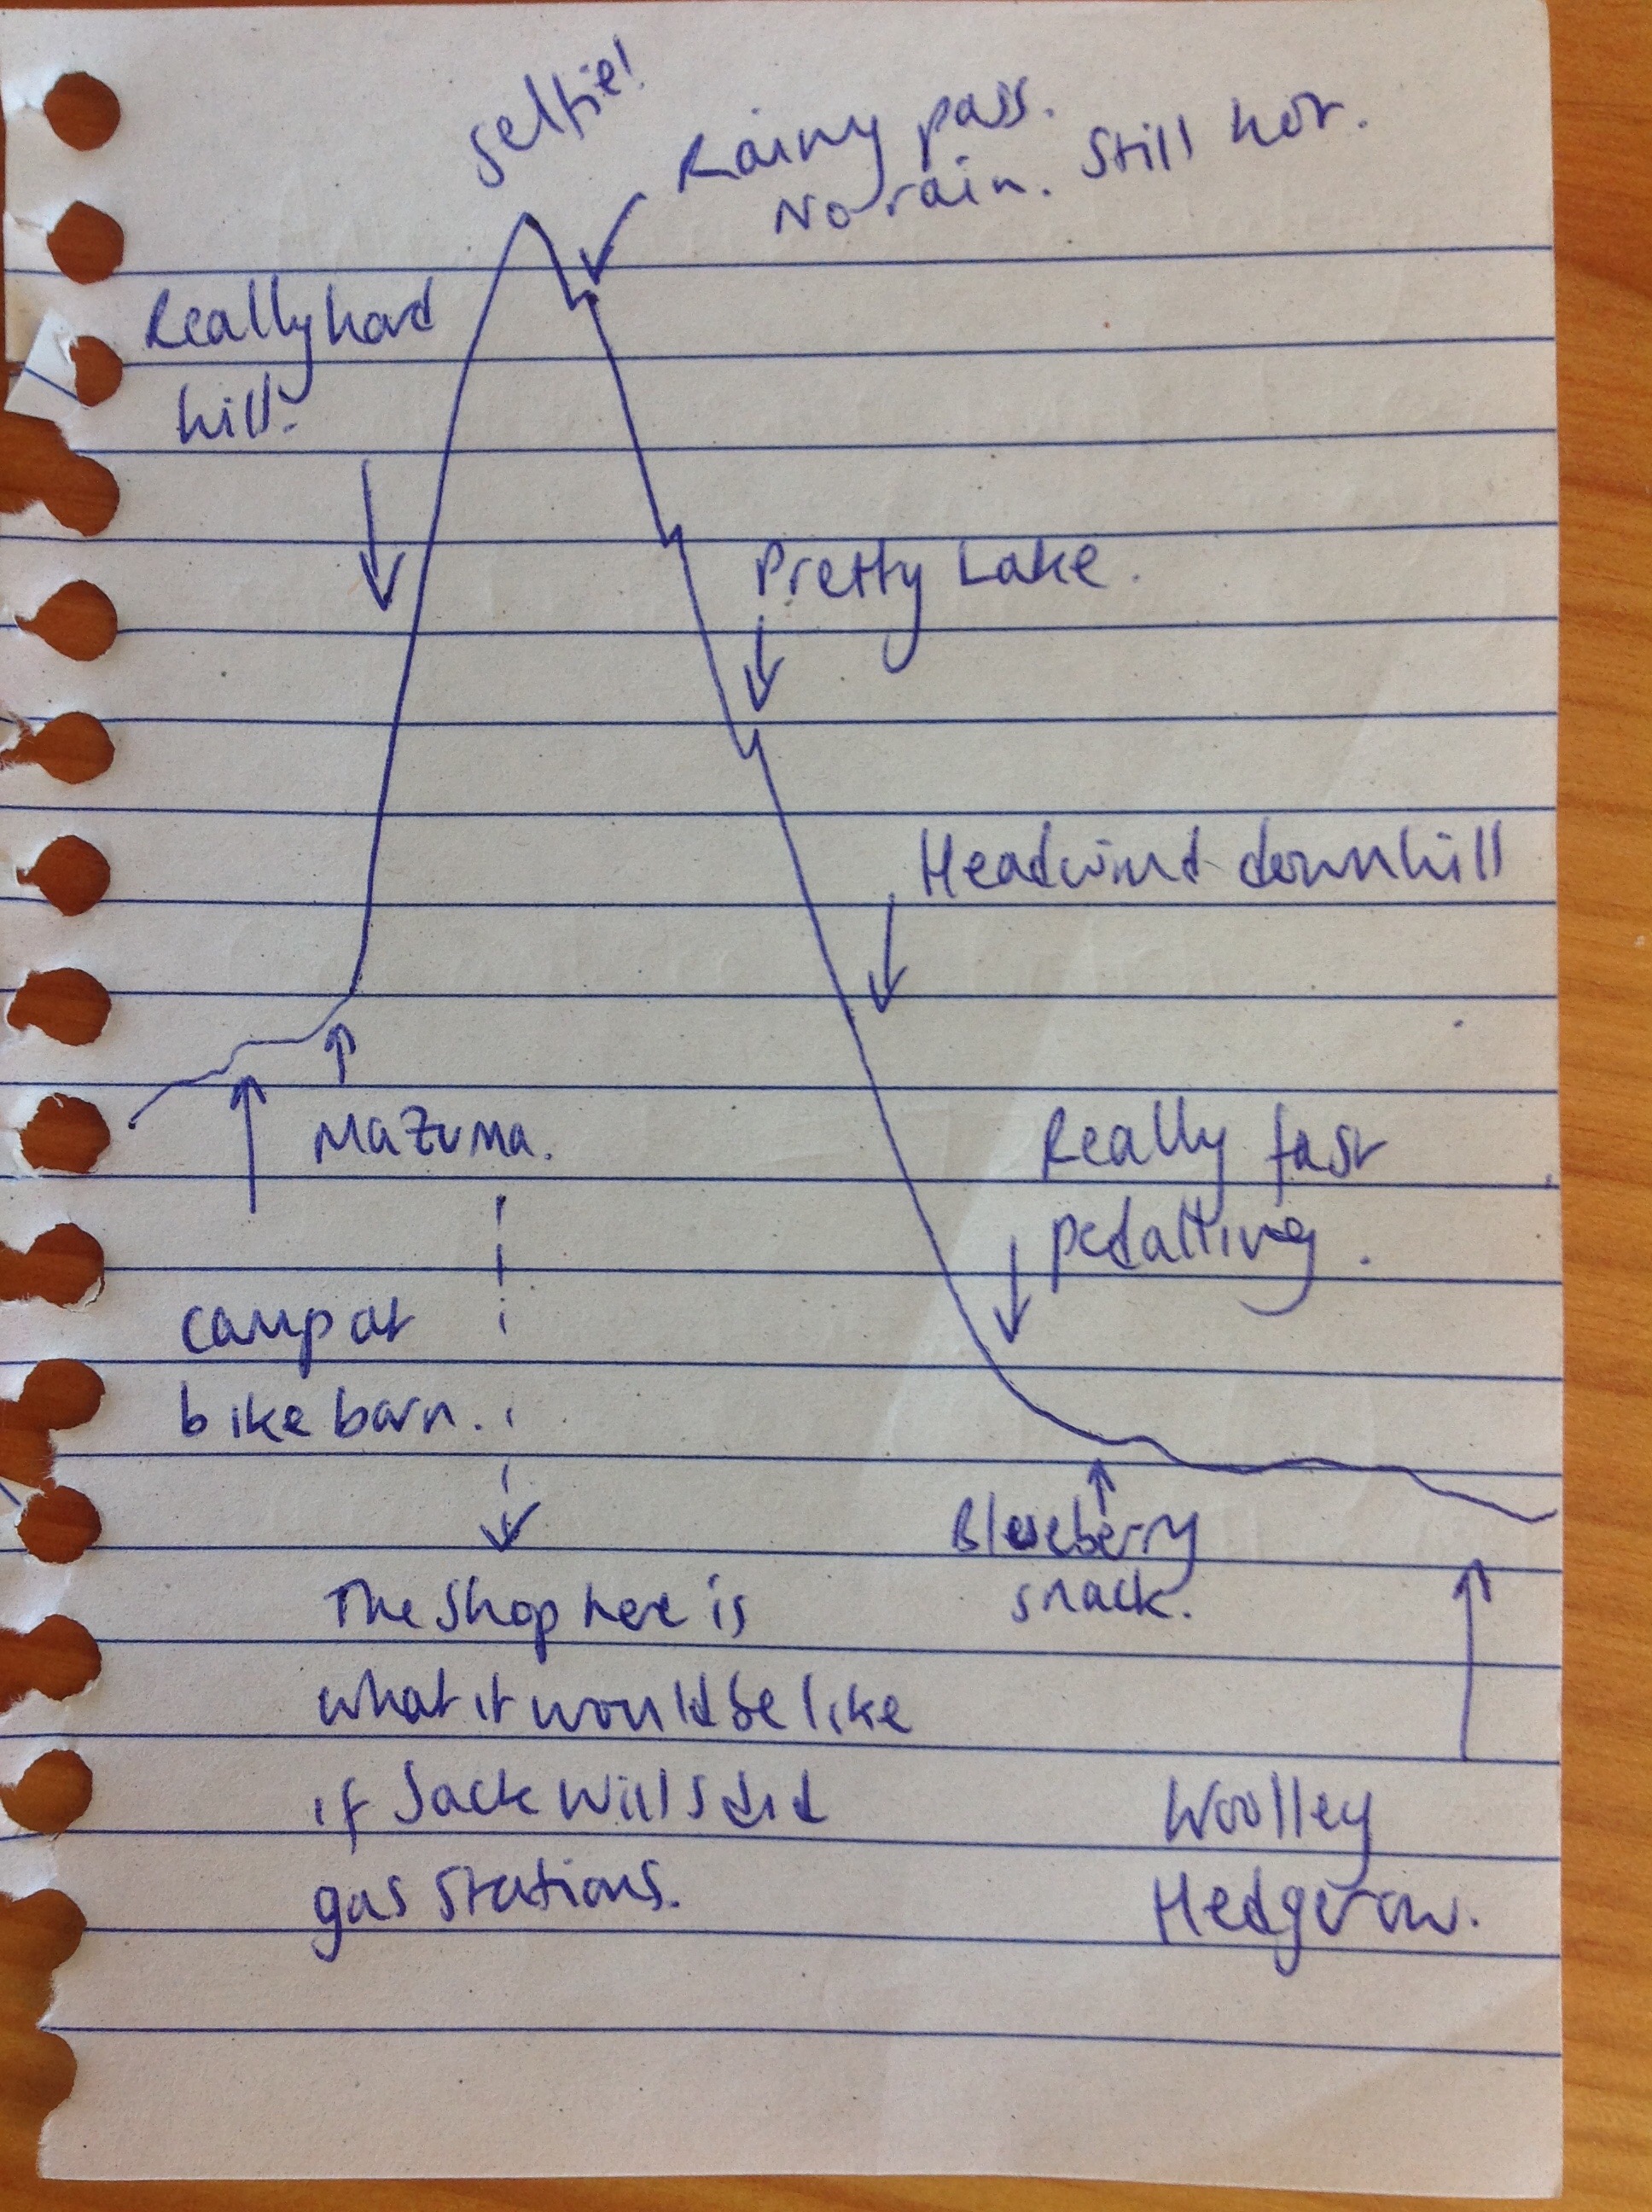 selfie!
Rainy pass.
No rain. Still hot.
Really hard
hill.
Pretty Lake.
Headwind downhill
Mazuma.
Really fast
pedalling.
camp at
bike barn.
Blueberry
snack.
The shop here is
what it would be like
if Jack Wills did
gas stations.
Woolley
Hedgerow.